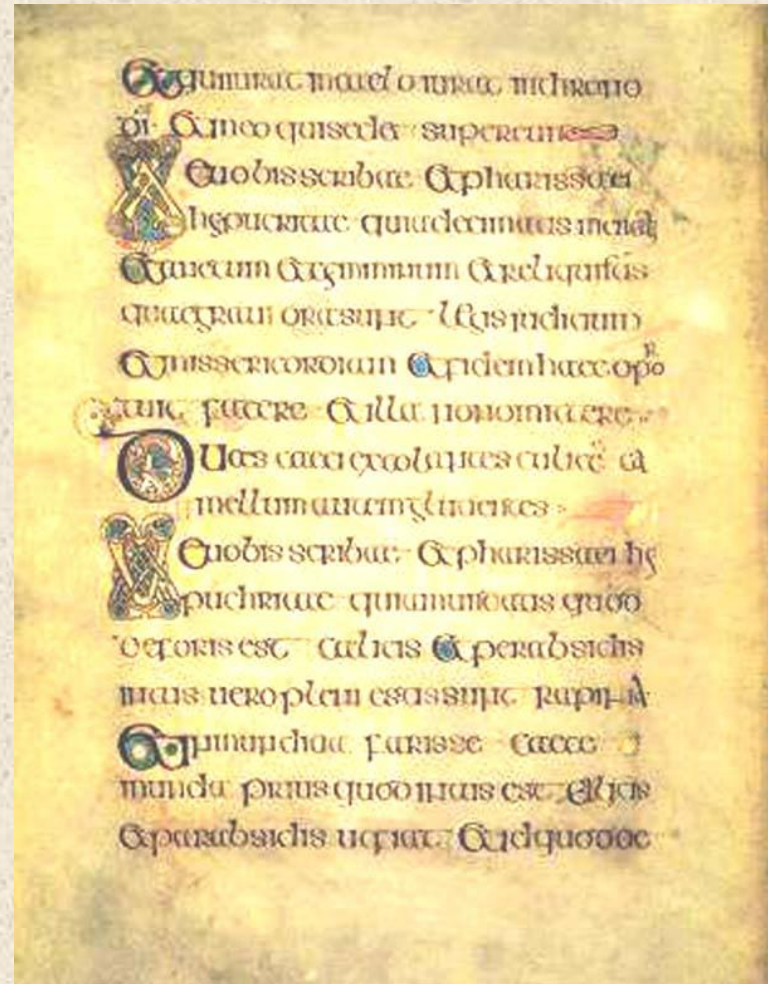 Et qui iurat in caelo iurat in throno
di· Et in eo qui sedet super eum
Uae uobis scribae Et pharissaei
hypucritae quia decimatis
Et anetum Et cyminum Et reliquistis
quae grauiora sunt legis iudicium
Et missericordiam Et fidem haec opor
tuit facere Et illa non omittere
Duces caeci excolantes culicē ca
mellum autem glutientes
Uae uobis scribae Et pharissaei hy
puchritae quia mundatis quod
deforis est calicis Et perabsidis
intus uero pleni sunt rapina
Et inmunditia farisee caece
munda prius quod intus est calicis
Et parabsidis ut fiat Et id quod de